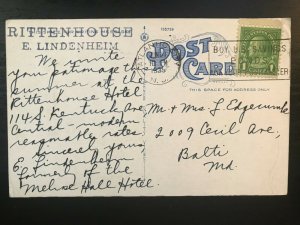 RITTENHOUSE
E. LINDENHEIM
105729
POST
CARD
THIS SPACE FOR ADDRESS ONLY
BUY U.S. SAVINGS
We invite
your patronage this
summer at the
Rittenhouse Hotel
114 S. Kentucky Ave.
Central - modern
reasonably rates.
Sincerely yours,
E. Lindenheim
former of the
Melrose Hall Hotel.
Mr + Mrs L. Edgecumbe
2009 Cecil Ave,
Balti
Md.